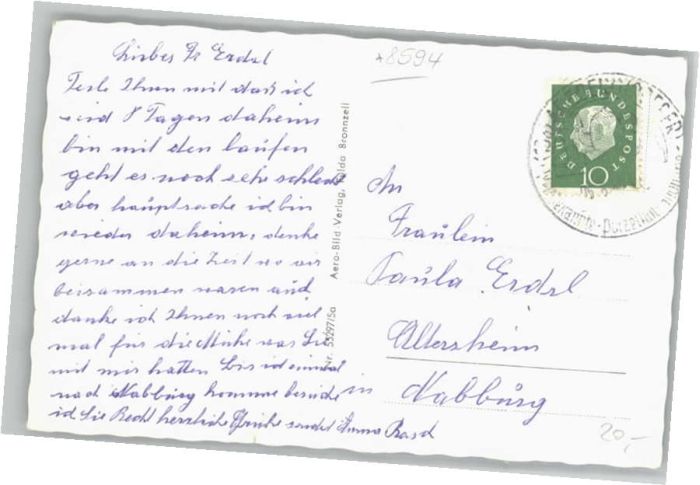 Liebes Fr Erdsl
Teile Ihnen mit dass ich
seid 8 Tagen daheim
bin mit den laufen
geht es noch sehr schlecht
aber hauptsache ich bin
wieder daheim, denke
gerne an die Zeit wo wir
beisammen waren und
danke ich Ihnen noch viel
mal für die Mühe was Sie
mit mir hatten bis ich einmal
nach Nabburg komme besuche
ich Sie Recht herzliche Grüße sendet Anna
*8594
Nr. 55297/5a Aero-Bild-Verlag, Fulda Bronnzell
DEUTSCHE BUNDESPOST
10
An
Fräulein
Paula Erdsl
Altersheim
in Nabburg
20,-